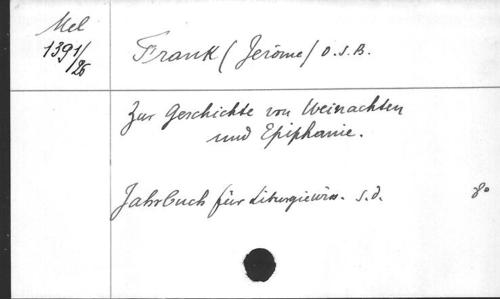 Mel
1391/
25
Frank (Jerôme) O.S.B.
Zur Geschichte von Weinachten
und Epiphanie.
Jahrbuch für Liturgiewiss. s.d. 8°